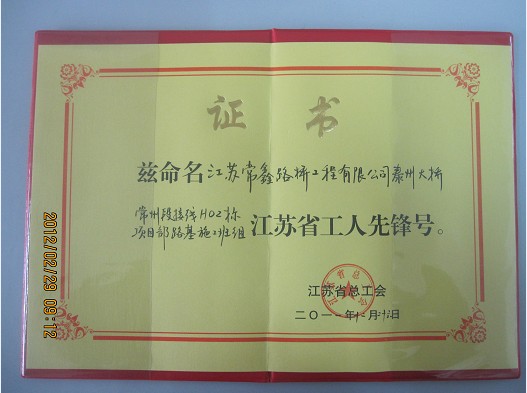 证书
兹命名江苏常鑫路桥工程有限公司泰州大桥
常州段接线H02标
项目部路基施工班组 江苏省工人先锋号。
江苏省总工会
二〇一一年十二月
2012/02/29 09:12